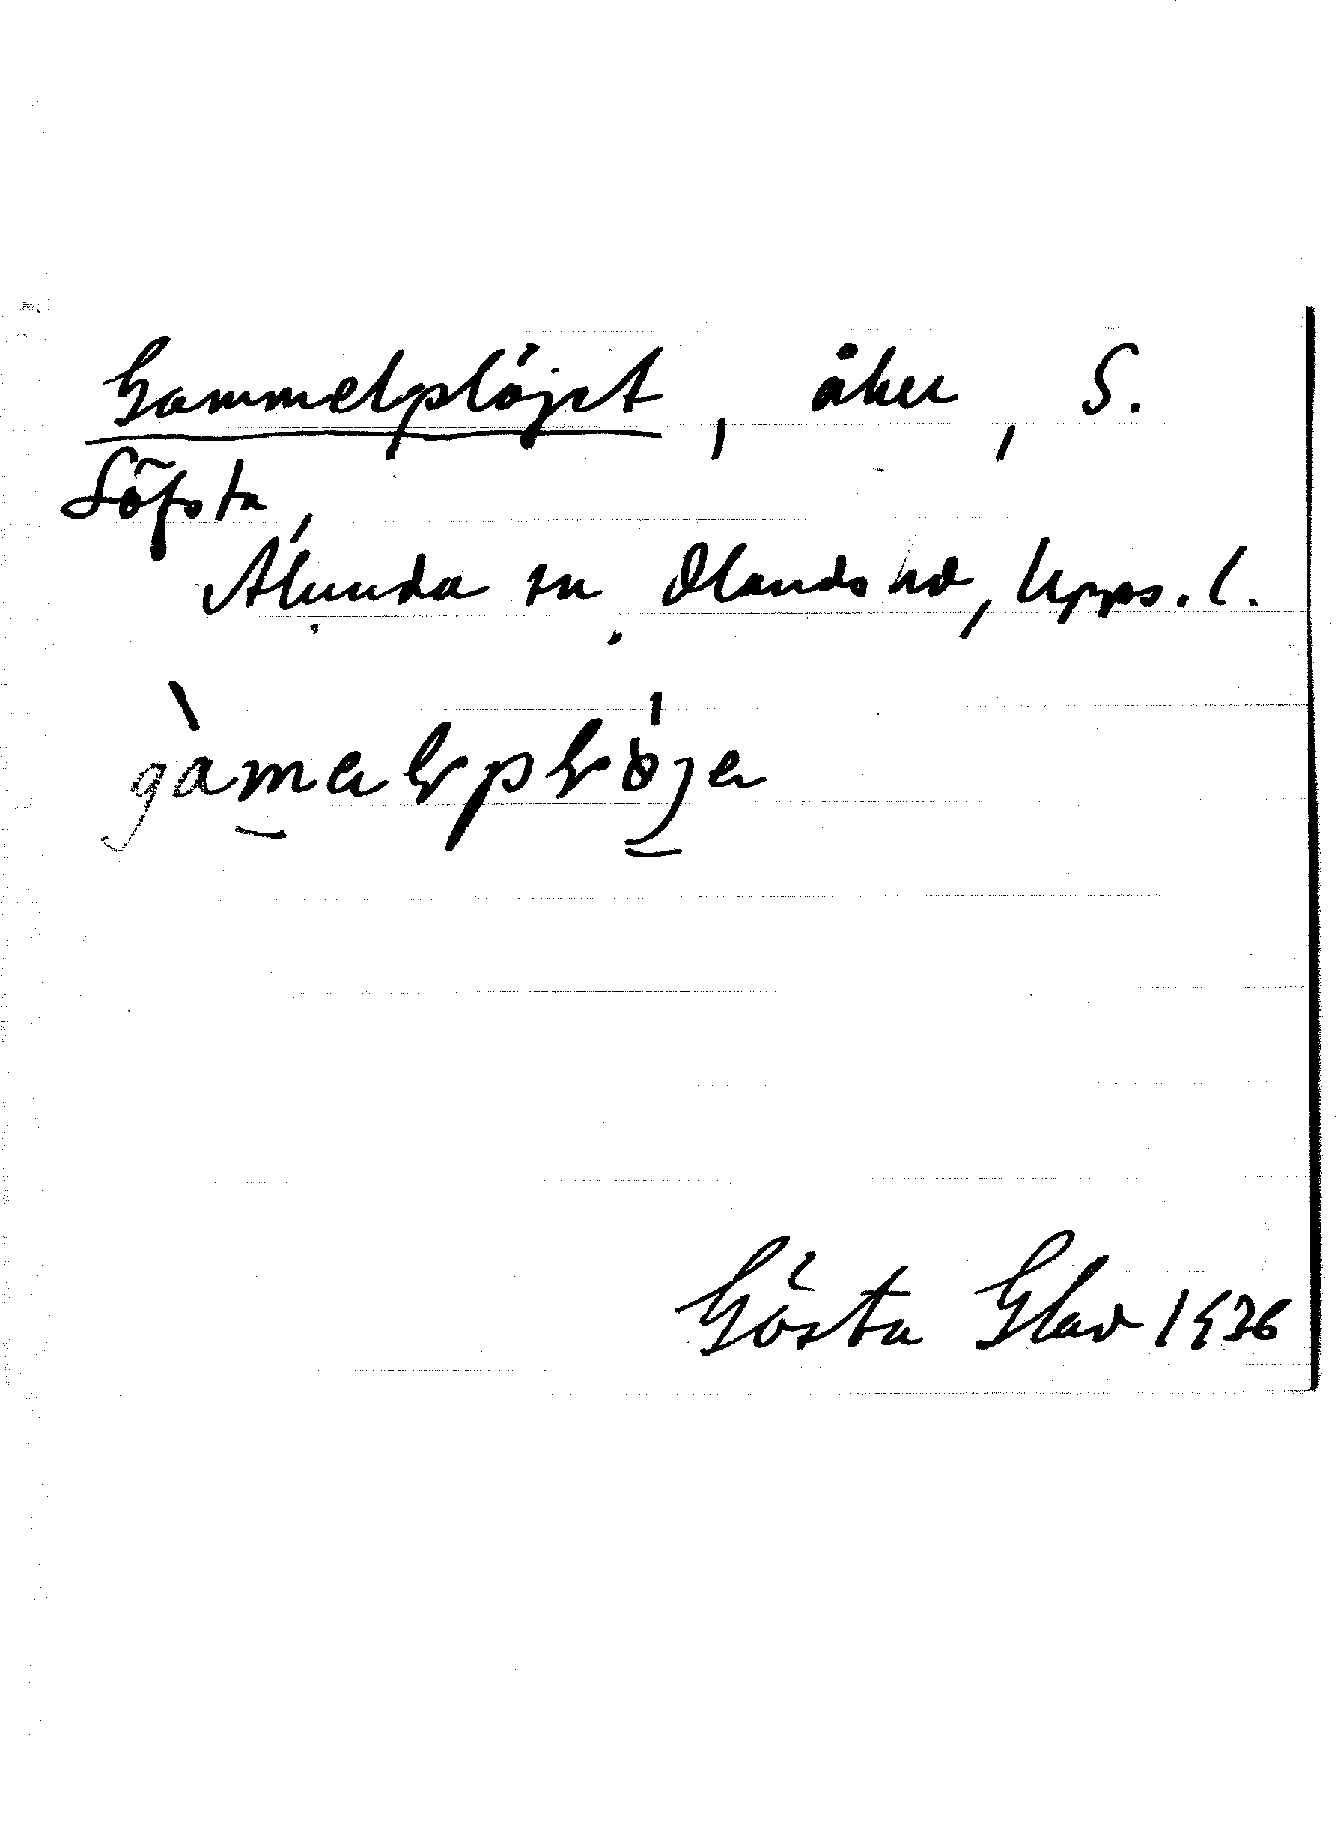 Gammelplöjet, åker, S.
Löfsta,
Alunda sn Olands hd, Upps. l.
gàmalplöja
Gösta Glad 1936